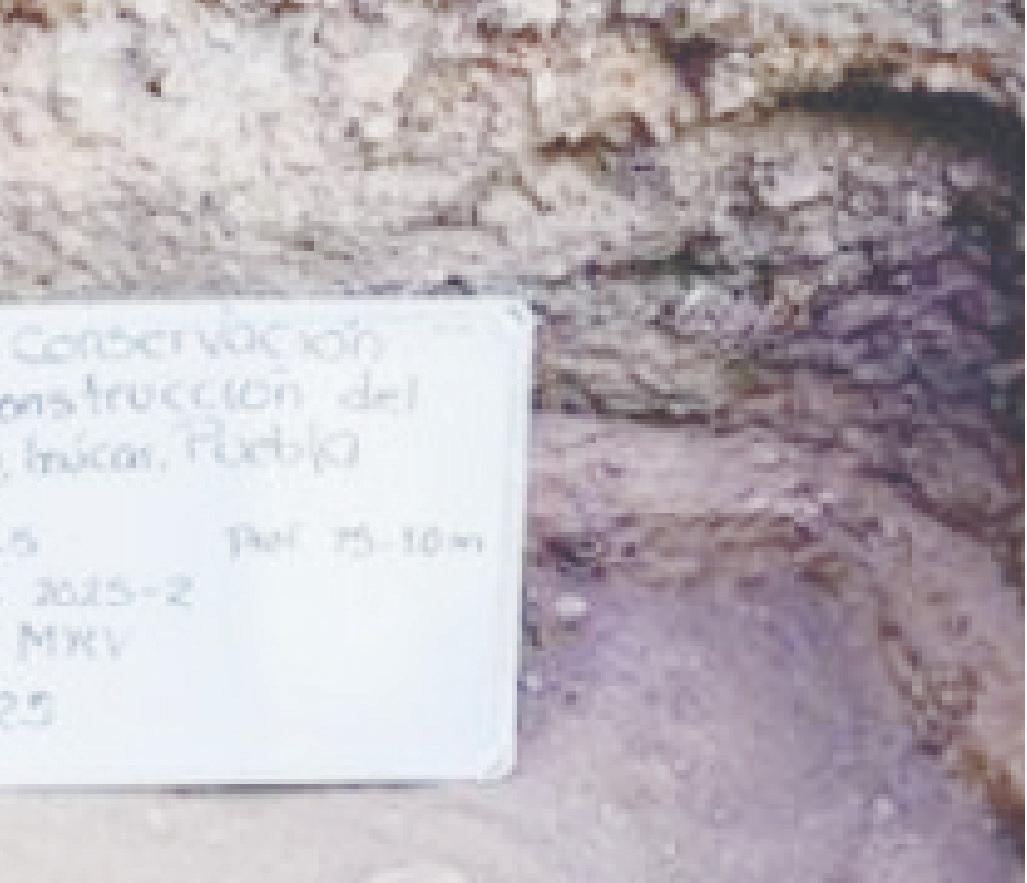 Conservación
onstrucción del
Izúcar, Puebla
5 75-10m
2025-2
MXV
25